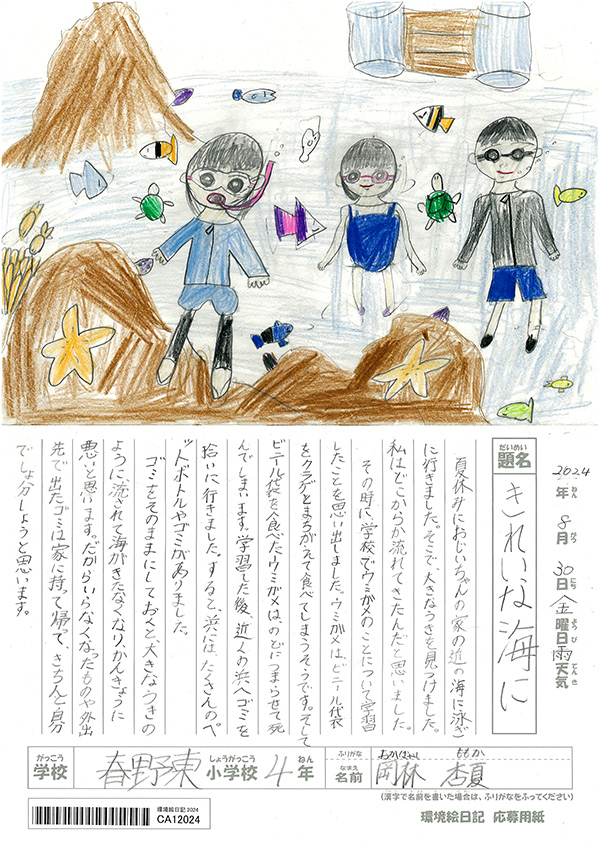 2024年 8月 30日 金曜日 雨天気
ねん がつ にち ようび てんき
だいめい
題名
きれいな海に
夏休みにおじいちゃんの家の近の海に泳ぎ
に行きました。そこで、大きなうきを見つけました。
私はどこからか流れてきたんだと思いました。
その時に、学校でウミガメのことについて学習
したことを思い出しました。ウミガメは、ビニール袋
をクラゲとまちがえて食べてしまうそうです。そして
ビニール袋を食べたウミガメは、のどにつまらせて死
んでしまいます。学習した後、近くの浜へゴミを
拾いに行きました。すると、浜には、たくさんのペ
ットボトルやゴミがありました。
ゴミをそのままにしておくと、大きなうきの
ように、流されて海がきたなくなり、かんきょうに
悪いと思います。だからいらなくなったものや外出
先で出たゴミは家に持って帰って、きちんと自分
でしょ分しようと思います。
がっこう しょうがっこう ねん
学校 春野東小学校 4年
ふりがな おかばやし ももか
なまえ
名前 岡林 杏夏
(漢字で名前を書いた場合は、ふりがなをふってください)
環境絵日記 2024
CA12024
環境絵日記 応募用紙